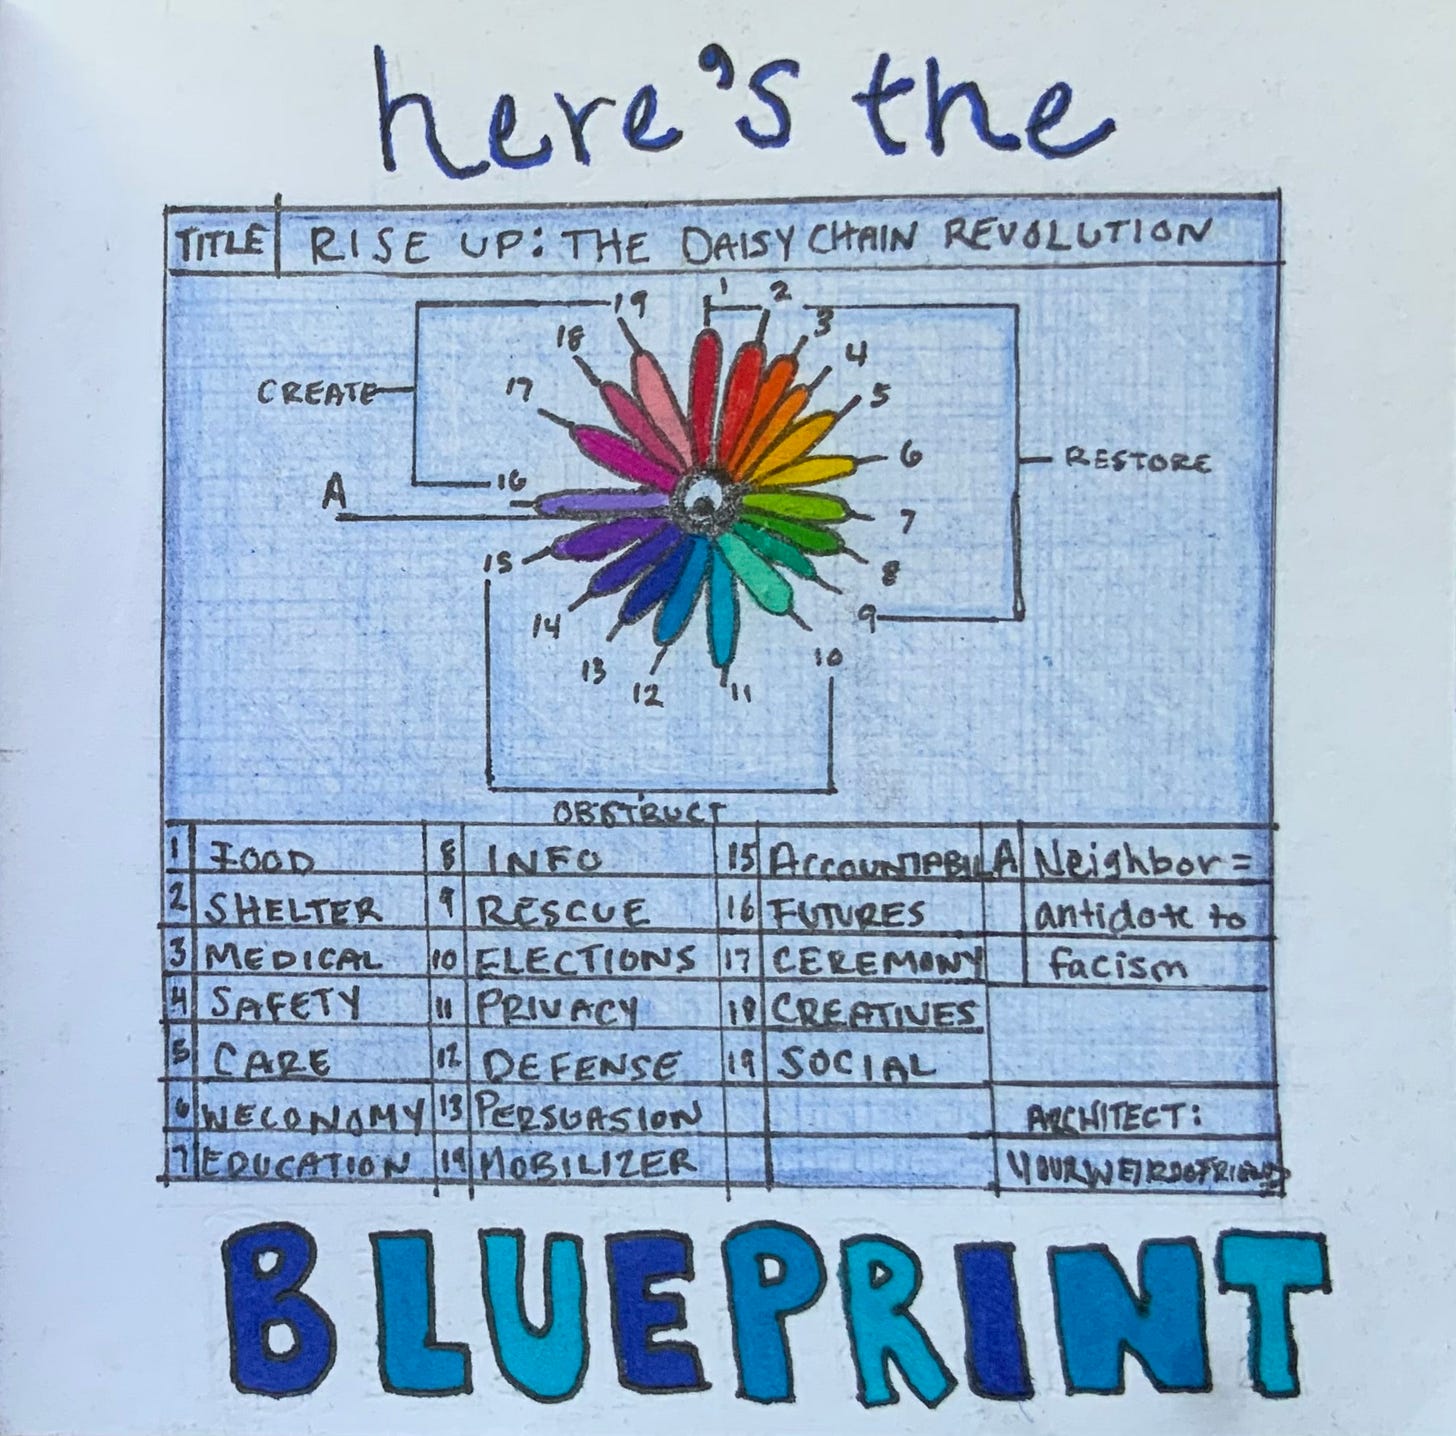 here's the
TITLE RISE UP: THE DAISY CHAIN REVOLUTION
1 2 3 4 5 6 7 8 9 10 11 12 13 14 15 16 17 18 19
CREATE
A
RESTORE
OBSTRUCT
1 FOOD 8 INFO 15 ACCOUNTABIL A Neighbor =
2 SHELTER 9 RESCUE 16 FUTURES antidote to
3 MEDICAL 10 ELECTIONS 17 CEREMONY facism
4 SAFETY 11 PRIVACY 18 CREATIVES
5 CARE 12 DEFENSE 19 SOCIAL
6 WECONOMY 13 PERSUASION ARCHITECT:
7 EDUCATION 14 MOBILIZER YOURWEIRDOFRIEND
BLUEPRINT